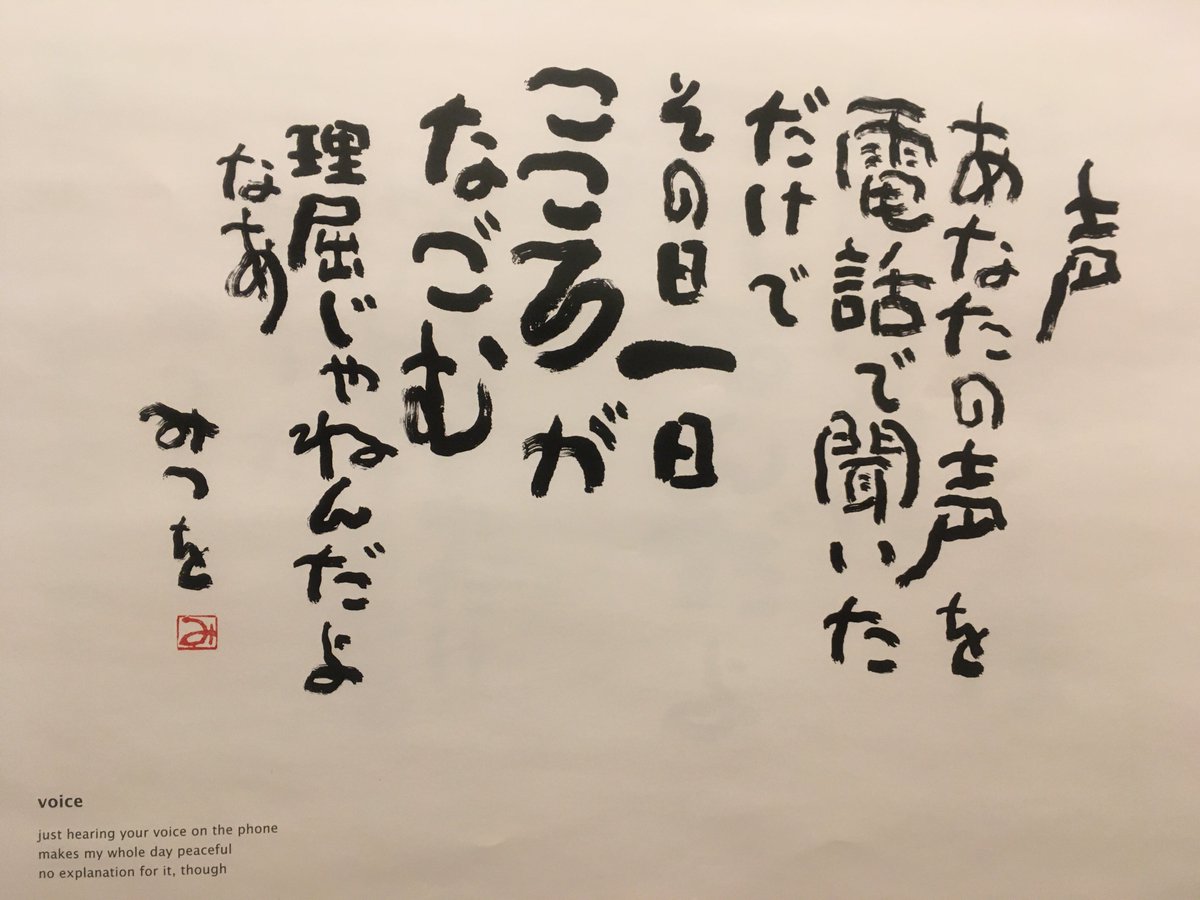 声
あなたの声を
電話で聞いた
だけで
その日一日
こころが
なごむ
理屈じゃねんだよ
なあ
みつを
み
voice
just hearing your voice on the phone
makes my whole day peaceful
no explanation for it, though